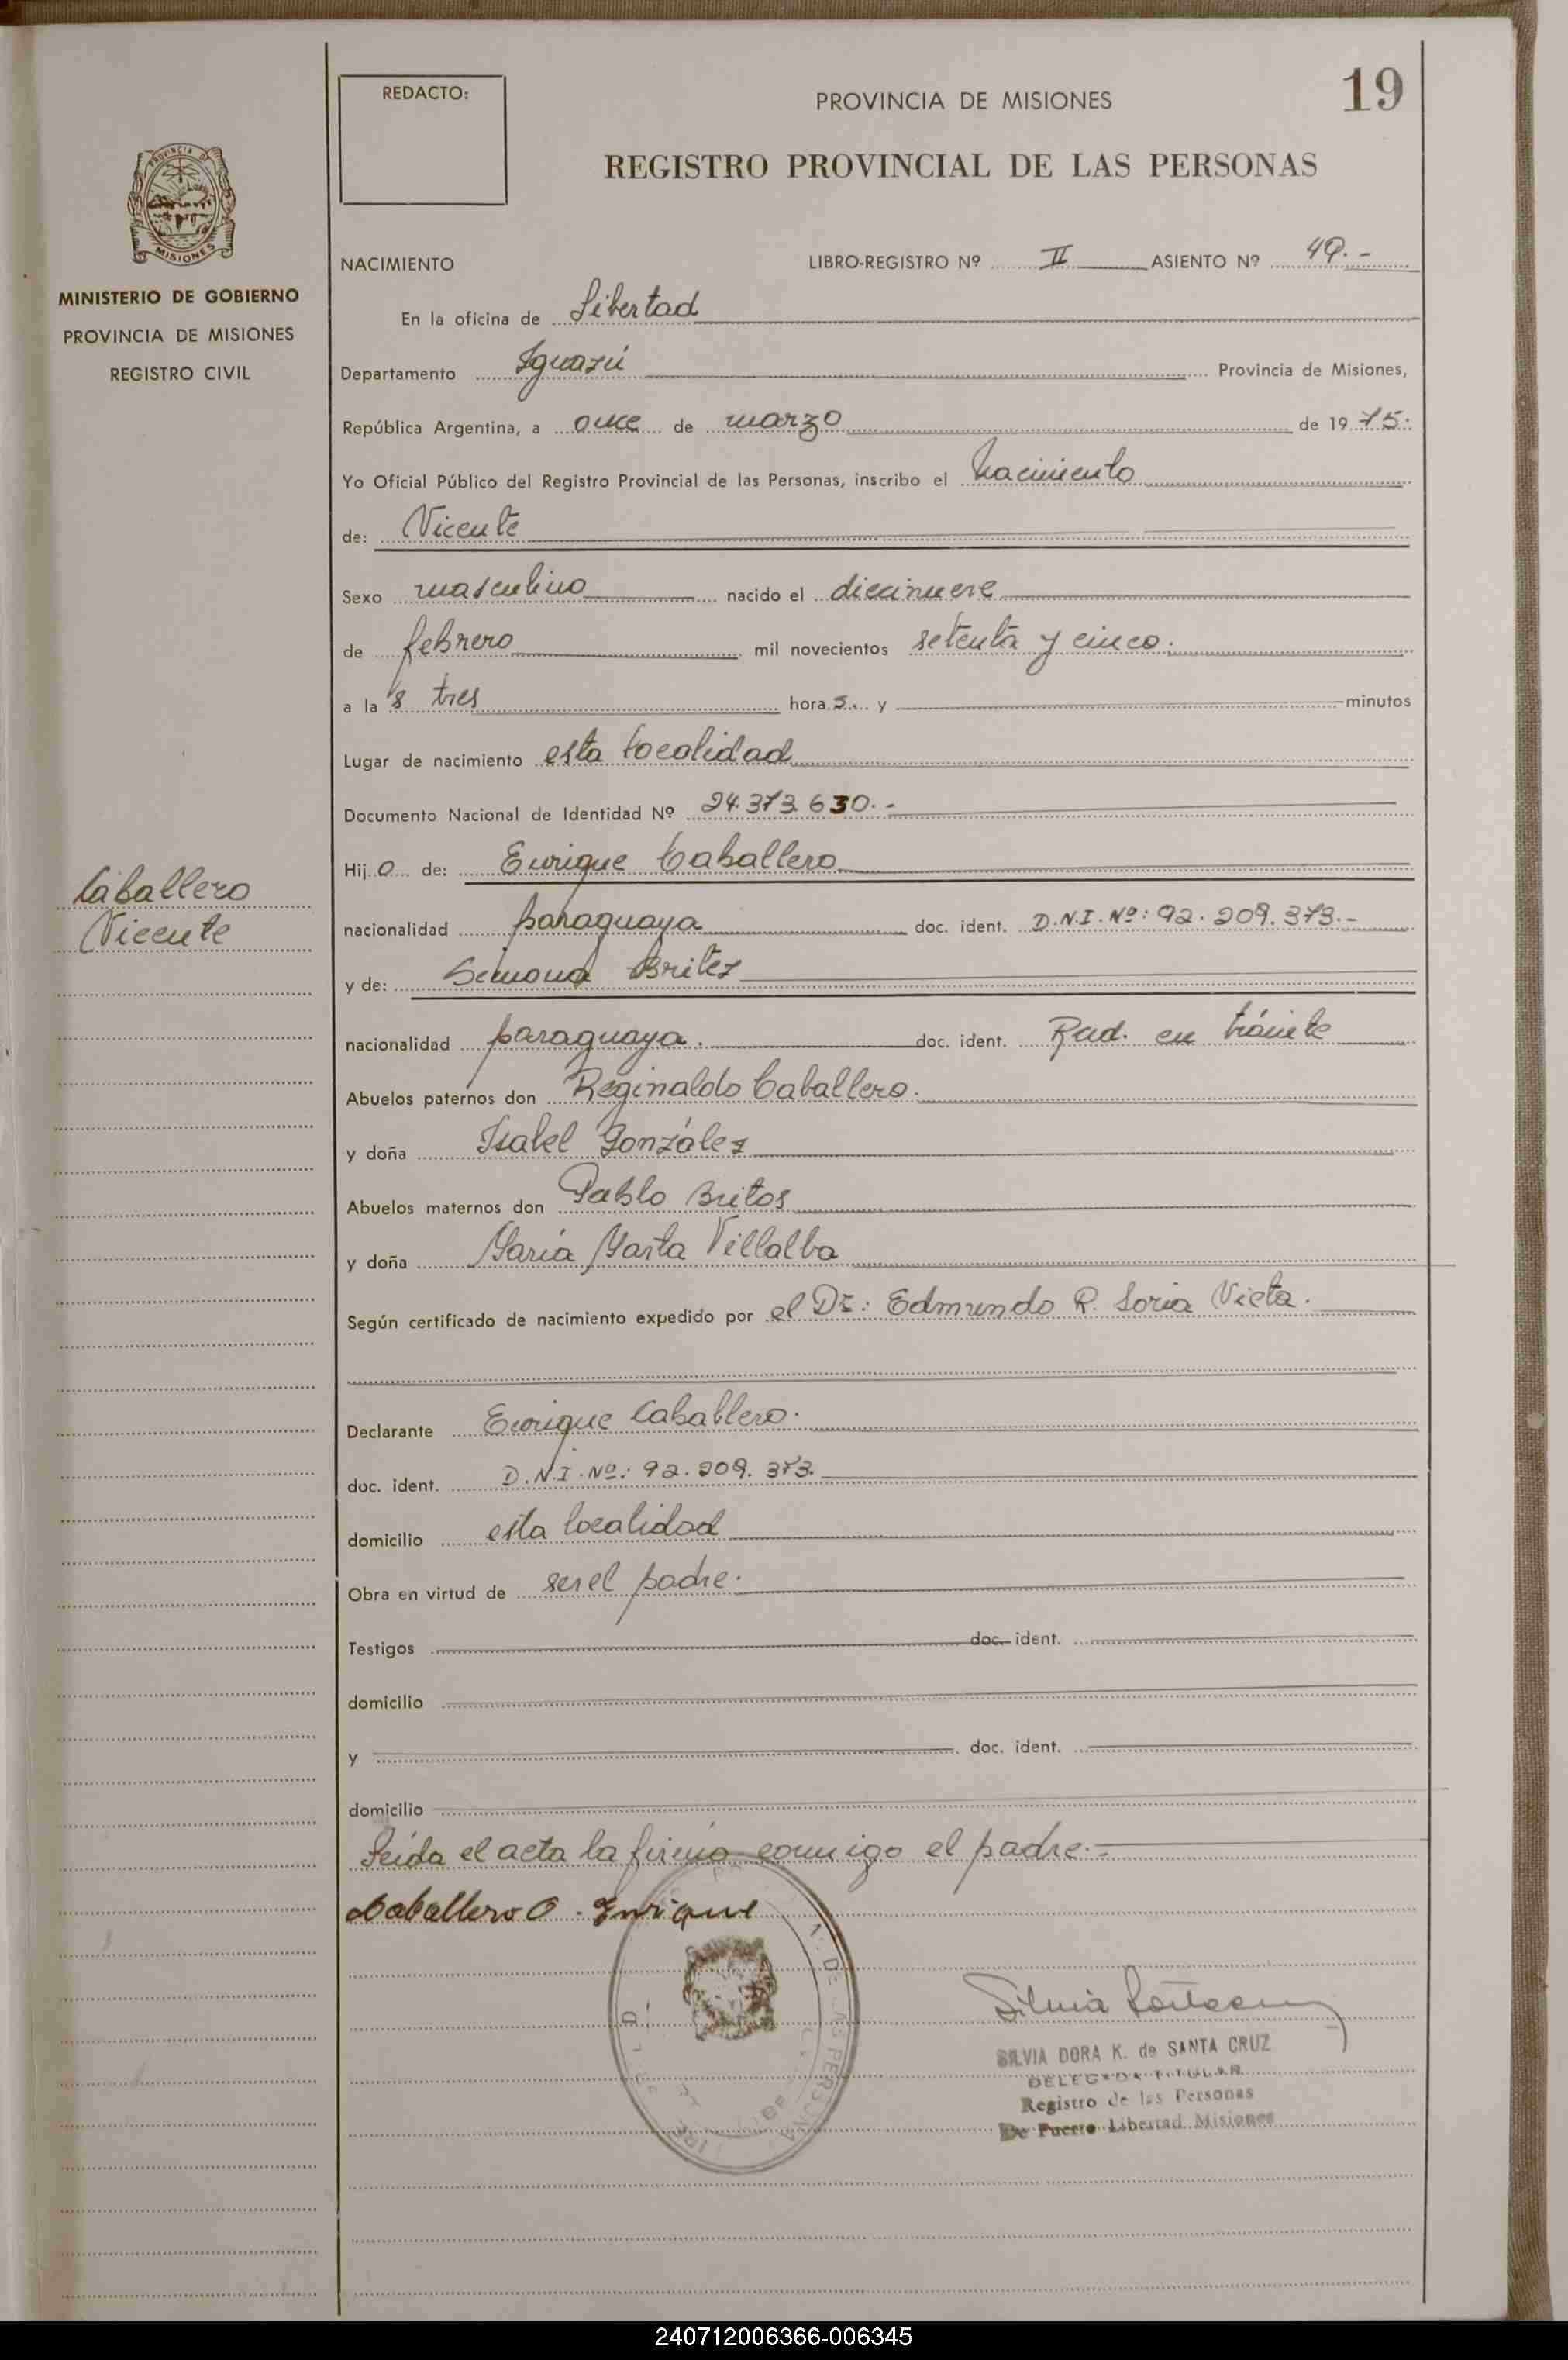 19
REDACTO:
PROVINCIA DE MISIONES
REGISTRO PROVINCIAL DE LAS PERSONAS
MISIONES
MINISTERIO DE GOBIERNO
PROVINCIA DE MISIONES
REGISTRO CIVIL
NACIMIENTO LIBRO-REGISTRO Nº II ASIENTO Nº 49.-
En la oficina de Libertad
Departamento Iguazú Provincia de Misiones,
República Argentina, a once de marzo de 1975.
Yo Oficial Público del Registro Provincial de las Personas, inscribo el Nacimiento
de: Vicente
Sexo masculino nacido el diecinueve
de febrero mil novecientos setenta y cinco.
a las tres horas y minutos
Lugar de nacimiento esta localidad
Documento Nacional de Identidad Nº 24.373.630.-
Hijo de: Enrique Caballero
Caballero
Vicente
nacionalidad paraguaya doc. ident. D.N.I. Nº: 92.209.373.-
y de: Simona Britez
nacionalidad paraguaya. doc. ident. Rad. en trámite
Abuelos paternos don Reginaldo Caballero.
y doña Isabel González
Abuelos maternos don Pablo Britos
y doña María Marta Villalba
Según certificado de nacimiento expedido por el Dr: Edmundo R. Soria Vieta.
Declarante Enrique Caballero.
doc. ident. D.N.I. Nº: 92.209.373.
domicilio esta localidad
Obra en virtud de ser el padre.
Testigos doc. ident.
domicilio
y doc. ident.
domicilio
Leída el acta la firma conmigo el padre.-
Caballero O. Enrique
SILVIA DORA K. de SANTA CRUZ
DELEGADA TITULAR
Registro de las Personas
De Puerto Libertad Misiones
240712006366-006345